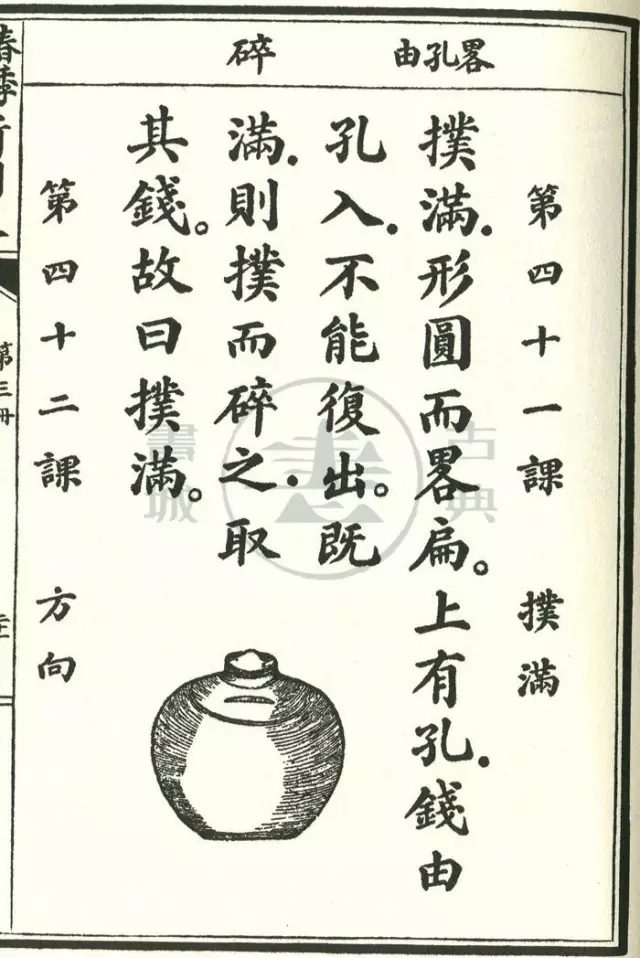 畧孔由 碎
第四十一課 撲滿
撲滿.形圓而畧扁。上有孔.錢由
孔入.不能復出。既
滿.則撲而碎之.取
其錢。故曰撲滿。
第四十二課 方向
春季
第三冊
古典
書城